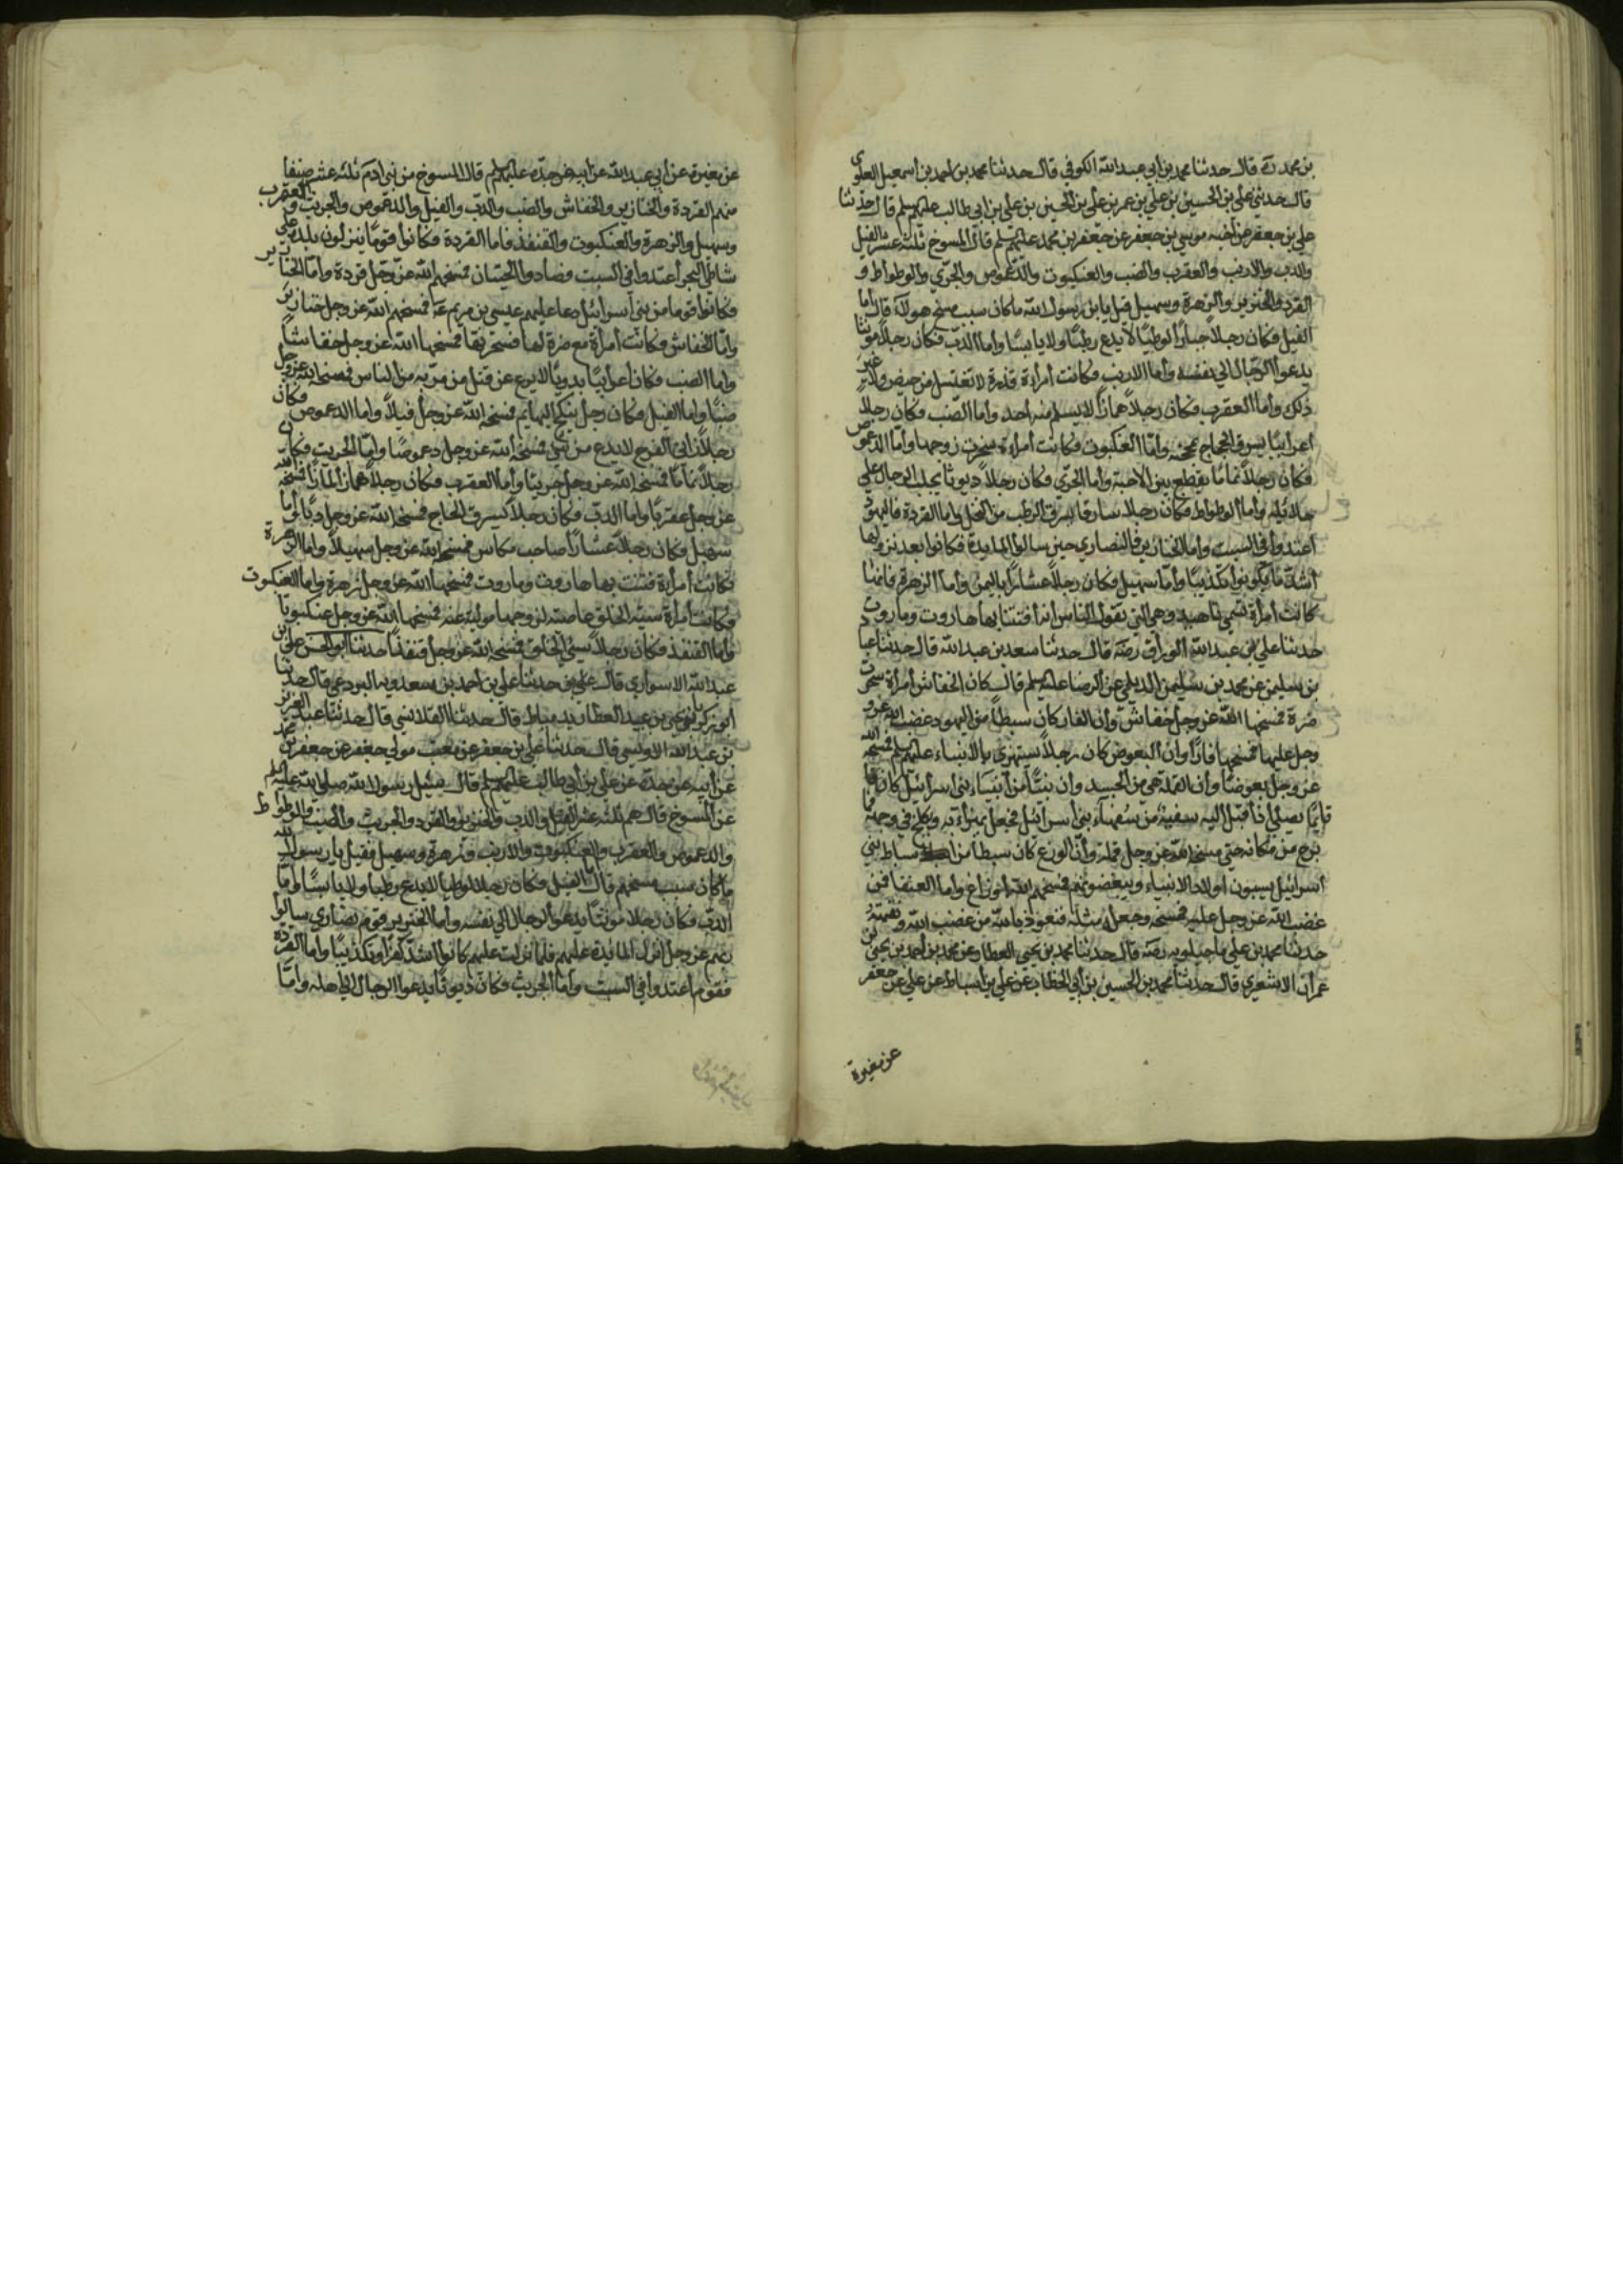 بن محمد رحمه قال حدثنا محمد بن ابي عبد الله الكوفي قال حدثنا محمد بن احمد بن اسمعيل العلوي
قال حدثني علي بن الحسين بن علي بن عمر بن علي بن الحسين بن علي بن ابي طالب عليهم السلم قال حدثنا
علي بن جعفر عن اخيه موسي بن جعفر عن جعفر بن محمد عليهم السلم قال المسوخ ثلثة عشر الفيل
والدب والارنب والعقرب والضب والعنكبوت والدعموص والجري والوطواط و
القرد والخنزير والزهرة وسهيل قيل يابن رسول الله ما كان سبب مسخ هولآء قال اما
الفيل فكان رجلاً جباراً لوطيًا لا يدع رطبًا ولا يابسًا واما الدب فكان رجلاً مونثا
يدعوا الرجال الي نفسه واما الارنب فكانت امراءة قذرة لا تغتسل من حيض ولا غير
ذلك واما العقرب فكان رجلاً همازاً لا يسلم منه احد واما الضب فكان رجلا
اعرابيًا يسرق الحجاج بمحجنه واما العنكبوت فكانت امراءة سحرت زوجها واما الدعموص
فكان رجلاً نمامًا يقطع بين الاحبة واما الجري فكان رجلاً ديوثا يجلب الرجال علي
حلائله واما الوطواط فكان رجلا سارقا يسرق الرطب من النخل واما القردة فاليهود
اعتدوا في السبت واما الخنازير فالنصاري حين سالوا المايدة فكانوا بعد نزولها
اشد ما يكونوا تكذيبًا واما سهيل فكان رجلاً عشارًا باليمن واما الزهرة فانها
كانت امراة تسمي ناهيد وهي التي تقول الناس انه افتتن بها هاروت وماروت
حدثنا علي بن عبد الله الوراق رضه قال حدثنا سعد بن عبد الله قال حدثنا عباد
بن سليمن عن محمد بن سليمن الديلمي عن الرضا عليه السلم قال كان الخفاش امراة سحرت
ضرة فمسخها الله عز وجل خفاش وان الفار كان سبطا من اليهود غضب الله عز و
وجل عليها فمسخها فارًا وان البعوض كان رجلاً يستهزي بالانبياء عليهم السلم فمسخه الله
عز وجل بعوضًا وان القملة هي من الجسد وان نبيًا من انبياء بني اسرائيل كان
قايمًا يصلي اذ اقبل اليه سفيه من سفهآء بني اسرائيل فجعل يهزاء به ويكلح في وجهه فما
برح من مكانه حتي مسخه الله عز وجل قملة وان الوزغ كان سبطا من اسباط بني
اسرائيل يسبون اولاد الانبياء ويبغضونهم فمسخهم الله اوزاغ واما العنقا فمن
غضب الله عز وجل عليه فمسخه وجعله مثلة فنعوذ بالله من غضب الله ونقمته
حدثنا محمد بن علي ماجيلويه رضه قال حدثنا محمد بن يحيي العطار عن محمد بن احمد بن يحيي بن
عمران الاشعري قال حدثنا محمد بن الحسين بن ابي الخطاب عن علي بن اسباط عن علي عن جعفر
عن مغيرة
عن مغيرة عن ابي عبد الله عن ابيه عن جده عليهم السلم قال المسوخ من بني ادم ثلثه عشر صنفا
منهم القردة والخنازير والخفاش والضب والدب والفيل والدعموص والجريث والعقرب
وسهيل والزهرة والعنكبوت والقنفذ فاما القردة فكانوا قومًا ينزلون بلدة علي
شاطئ البحر اعتدوا في السبت فصادوا الحيتان فمسخهم الله عز وجل قردة واما الخنازير
فكانوا قوما من بني اسرائيل دعا عليهم عيسي بن مريم ع فمسخهم الله عز وجل خنازير
واما الخفاش فكانت امرأة مع ضرة لها فسحرتها فمسخها الله عز وجل خفاشًا
واما الضب فكان اعرابيًا بدويًا لا يرع عن قتل من مر به من الناس فمسخه الله عز وجل
ضبًا واما الفيل فكان رجل ينكح البهايم فمسخه الله عز وجل فيلاً واما الدعموص فكان
رجلاً زاني الفرج لا يدع من شي فمسخه الله عز وجل دعموصًا واما الجريث فكان
رجلاً نمامًا فمسخه الله عز وجل جريثًا واما العقرب فكان رجلاً همازًا لمازًا فمسخه الله
عز وجل عقربًا واما الدب فكان رجلا يسرق الحاج فمسخه الله عز وجل دبًا واما
سهيل فكان رجلاً عشارًا صاحب مكاس فمسخه الله عز وجل سهيلاً واما الزهرة
فكانت امرأة فتنت بها هاروت وماروت فمسخها الله عز وجل زهرة واما العنكبوت
فكانت امرأة سيئة الخلق عاصية لزوجها مولية عنه فمسخها الله عز وجل عنكبوتًا
واما القنفذ فكان رجلاً سيئ الخلق فمسخه الله عز وجل قنفذًا حدثنا ابو الحسن علي بن
عبد الله الاسواري قال حدثنا علي بن احمد بن سعدويه البردعي قال حدثنا
ابو زكريا يحيي بن عبيد العطار بدمياط قال حدثنا القلانسي قال حدثنا عبد العزيز
بن عبد الله الاويسي قال حدثنا علي بن جعفر عن معتب مولي جعفر عن جعفر بن محمد
عن ابيه عن جده عن علي بن ابي طالب عليهم السلم قال سئل رسول الله صلي الله عليه
عن المسوخ قال هم ثلثه عشر الفيل والدب والخنزير والقرد والجريث والضب والوطواط
والدعموص والعقرب والعنكبوت والارنب وزهرة وسهيل فقيل يا رسول الله
ما كان سبب مسخهم قال اما الفيل فكان رجلا لوطيا لا يدع رطبا ولا يابسًا واما
الدب فكان رجلا مونثًا يدعوا لرجال الي نفسه واما الخنزير فقوم نصاري سالوا
ربهم عز وجل انزال المائدة عليهم فلما نزلت عليهم كانوا اشد كفرًا وتكذيبًا واما القردة
فقوم اعتدوا في السبت واما الجريث فكان ديوثًا يدعوا الرجال الي اهله واما